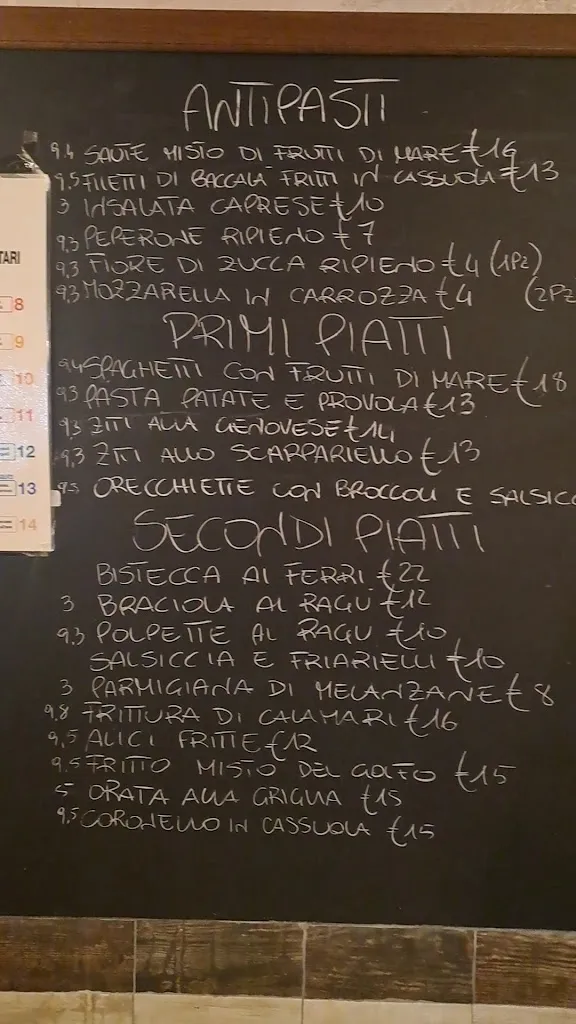 ANTIPASTI
9.4 SAUTE MISTO DI FRUTTI DI MARE €16
9.5 FILETTI DI BACCALA FRITTI IN CASSUOLA €13
3 INSALATA CAPRESE €10
9,3 PEPERONE RIPIENO €7
9,3 FIORE DI ZUCCA RIPIENO €4 (1PZ)
9,3 MOZZARELLA IN CARROZZA €4 (2PZ
PRIMI PIATTI
9.4 SPAGHETTI CON FRUTTI DI MARE €18
9.3 PASTA PATATE E PROVOLA €13
9.3 ZITI ALLA GENOVESE €14
9.3 ZITI ALLO SCARPARIELLO €13
9.3 ORECCHIETTE CON BROCCOLI E SALSICC
SECONDI PIATTI
BISTECCA AI FERRI €22
3 BRACIOLA AL RAGÙ €12
9.3 POLPETTE AL RAGU €10
SALSICCIA E FRIARIELLI €10
3 PARMIGIANA DI MELANZANE €8
9.8 FRITTURA DI CALAMARI €16
9.5 ALICI FRITTE €12
9.5 FRITTO MISTO DEL GOLFO €15
5 ORATA ALLA GRIGLIA €15
9,5 CORONELLO IN CASSUOLA €15
TARI
8
9
10
11
12
13
14